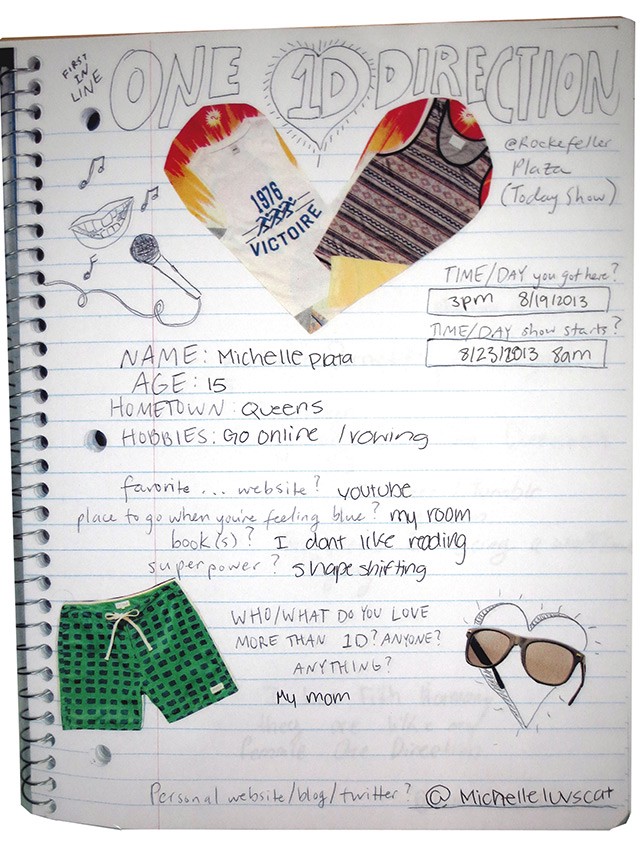 FIRST
IN
LINE
ONE 1D DIRECTION
@Rockefeller
Plaza
(Today Show)
1976
VICTOIRE
TIME/DAY you got here?
3pm 8/19/2013
TIME/DAY show starts?
8/23/2013 8am
NAME: Michelle plata
AGE: 15
HOMETOWN: Queens
HOBBIES: Go online /rowing
favorite... website? youtube
place to go when you're feeling blue? my room
book(s)? I dont like reading
superpower? shape shifting
WHO/WHAT DO YOU LOVE
MORE THAN 1D? ANYONE?
ANYTHING?
My mom
Personal website/blog/twitter? @Michelleluvscat